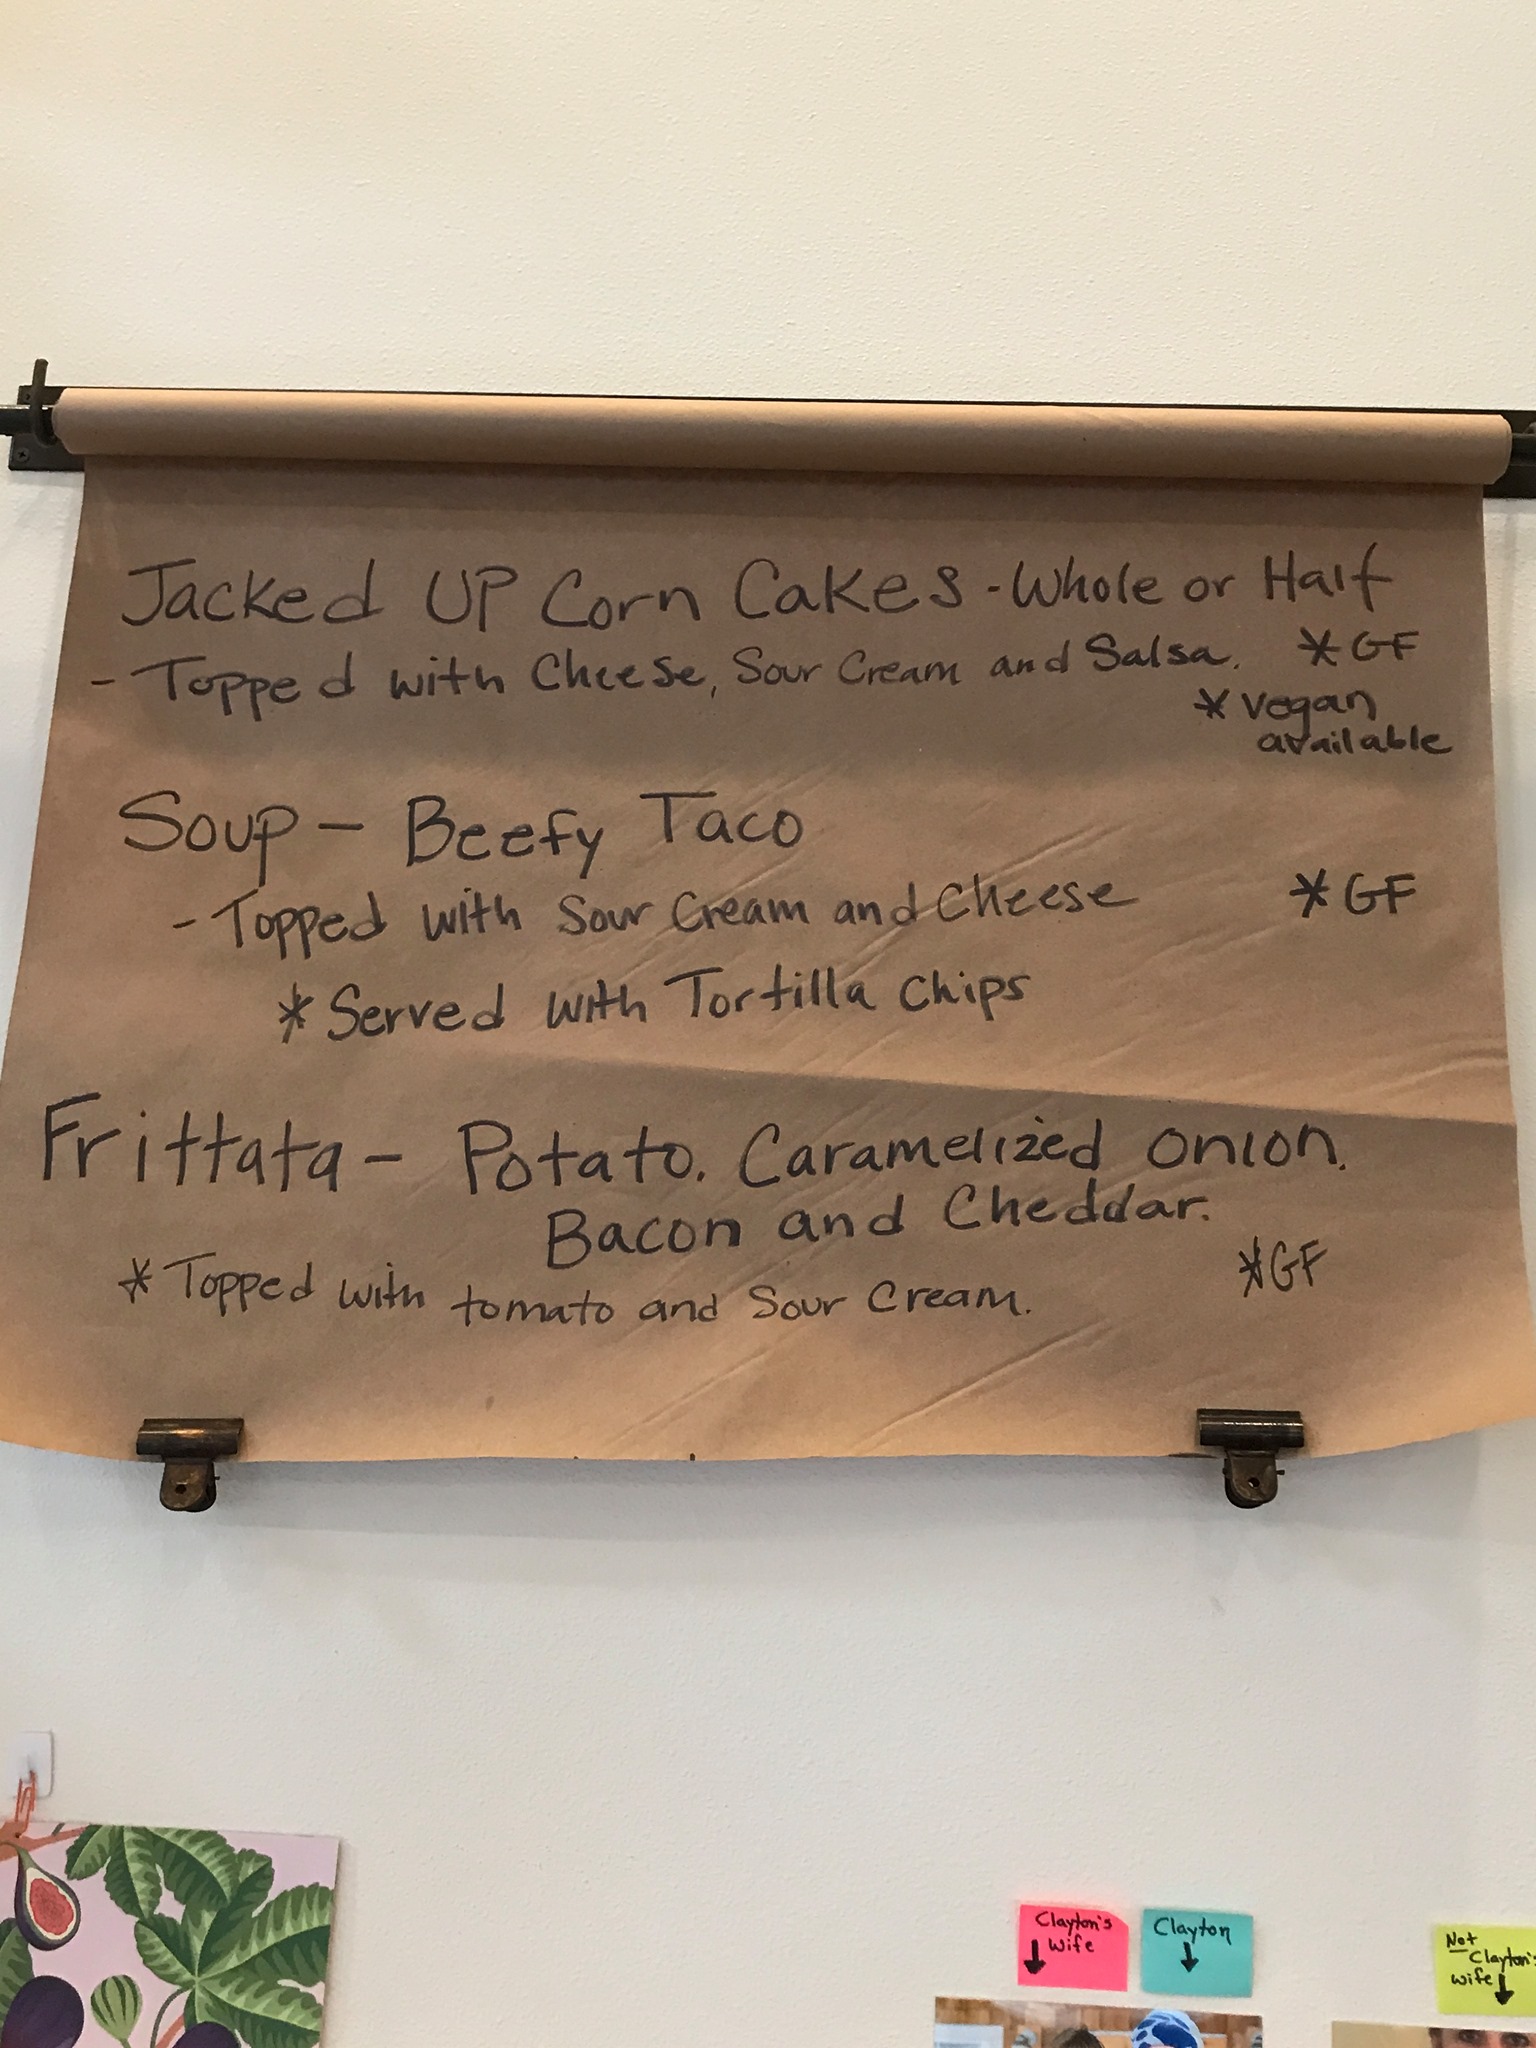 Jacked UP Corn Cakes - Whole or Half
- Topped with Cheese, Sour Cream and Salsa. * GF
* vegan
available
Soup - Beefy Taco
- Topped with Sour Cream and Cheese * GF
* Served with Tortilla Chips
Frittata - Potato. Caramelized Onion.
Bacon and Cheddar.
* Topped with tomato and Sour Cream. * GF
Clayton's
Wife
Clayton
Not
Clayton's
Wife